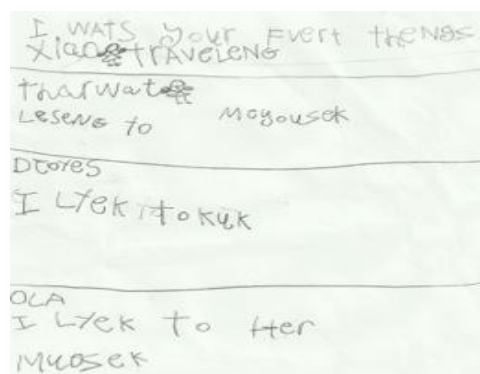 I WATS your FVert theNGS
XIao traveleNG
tharwat
LeseNG to Moyousek
Dtores
I LYek to kuk
OLA
I LYEK To Her
Muosek